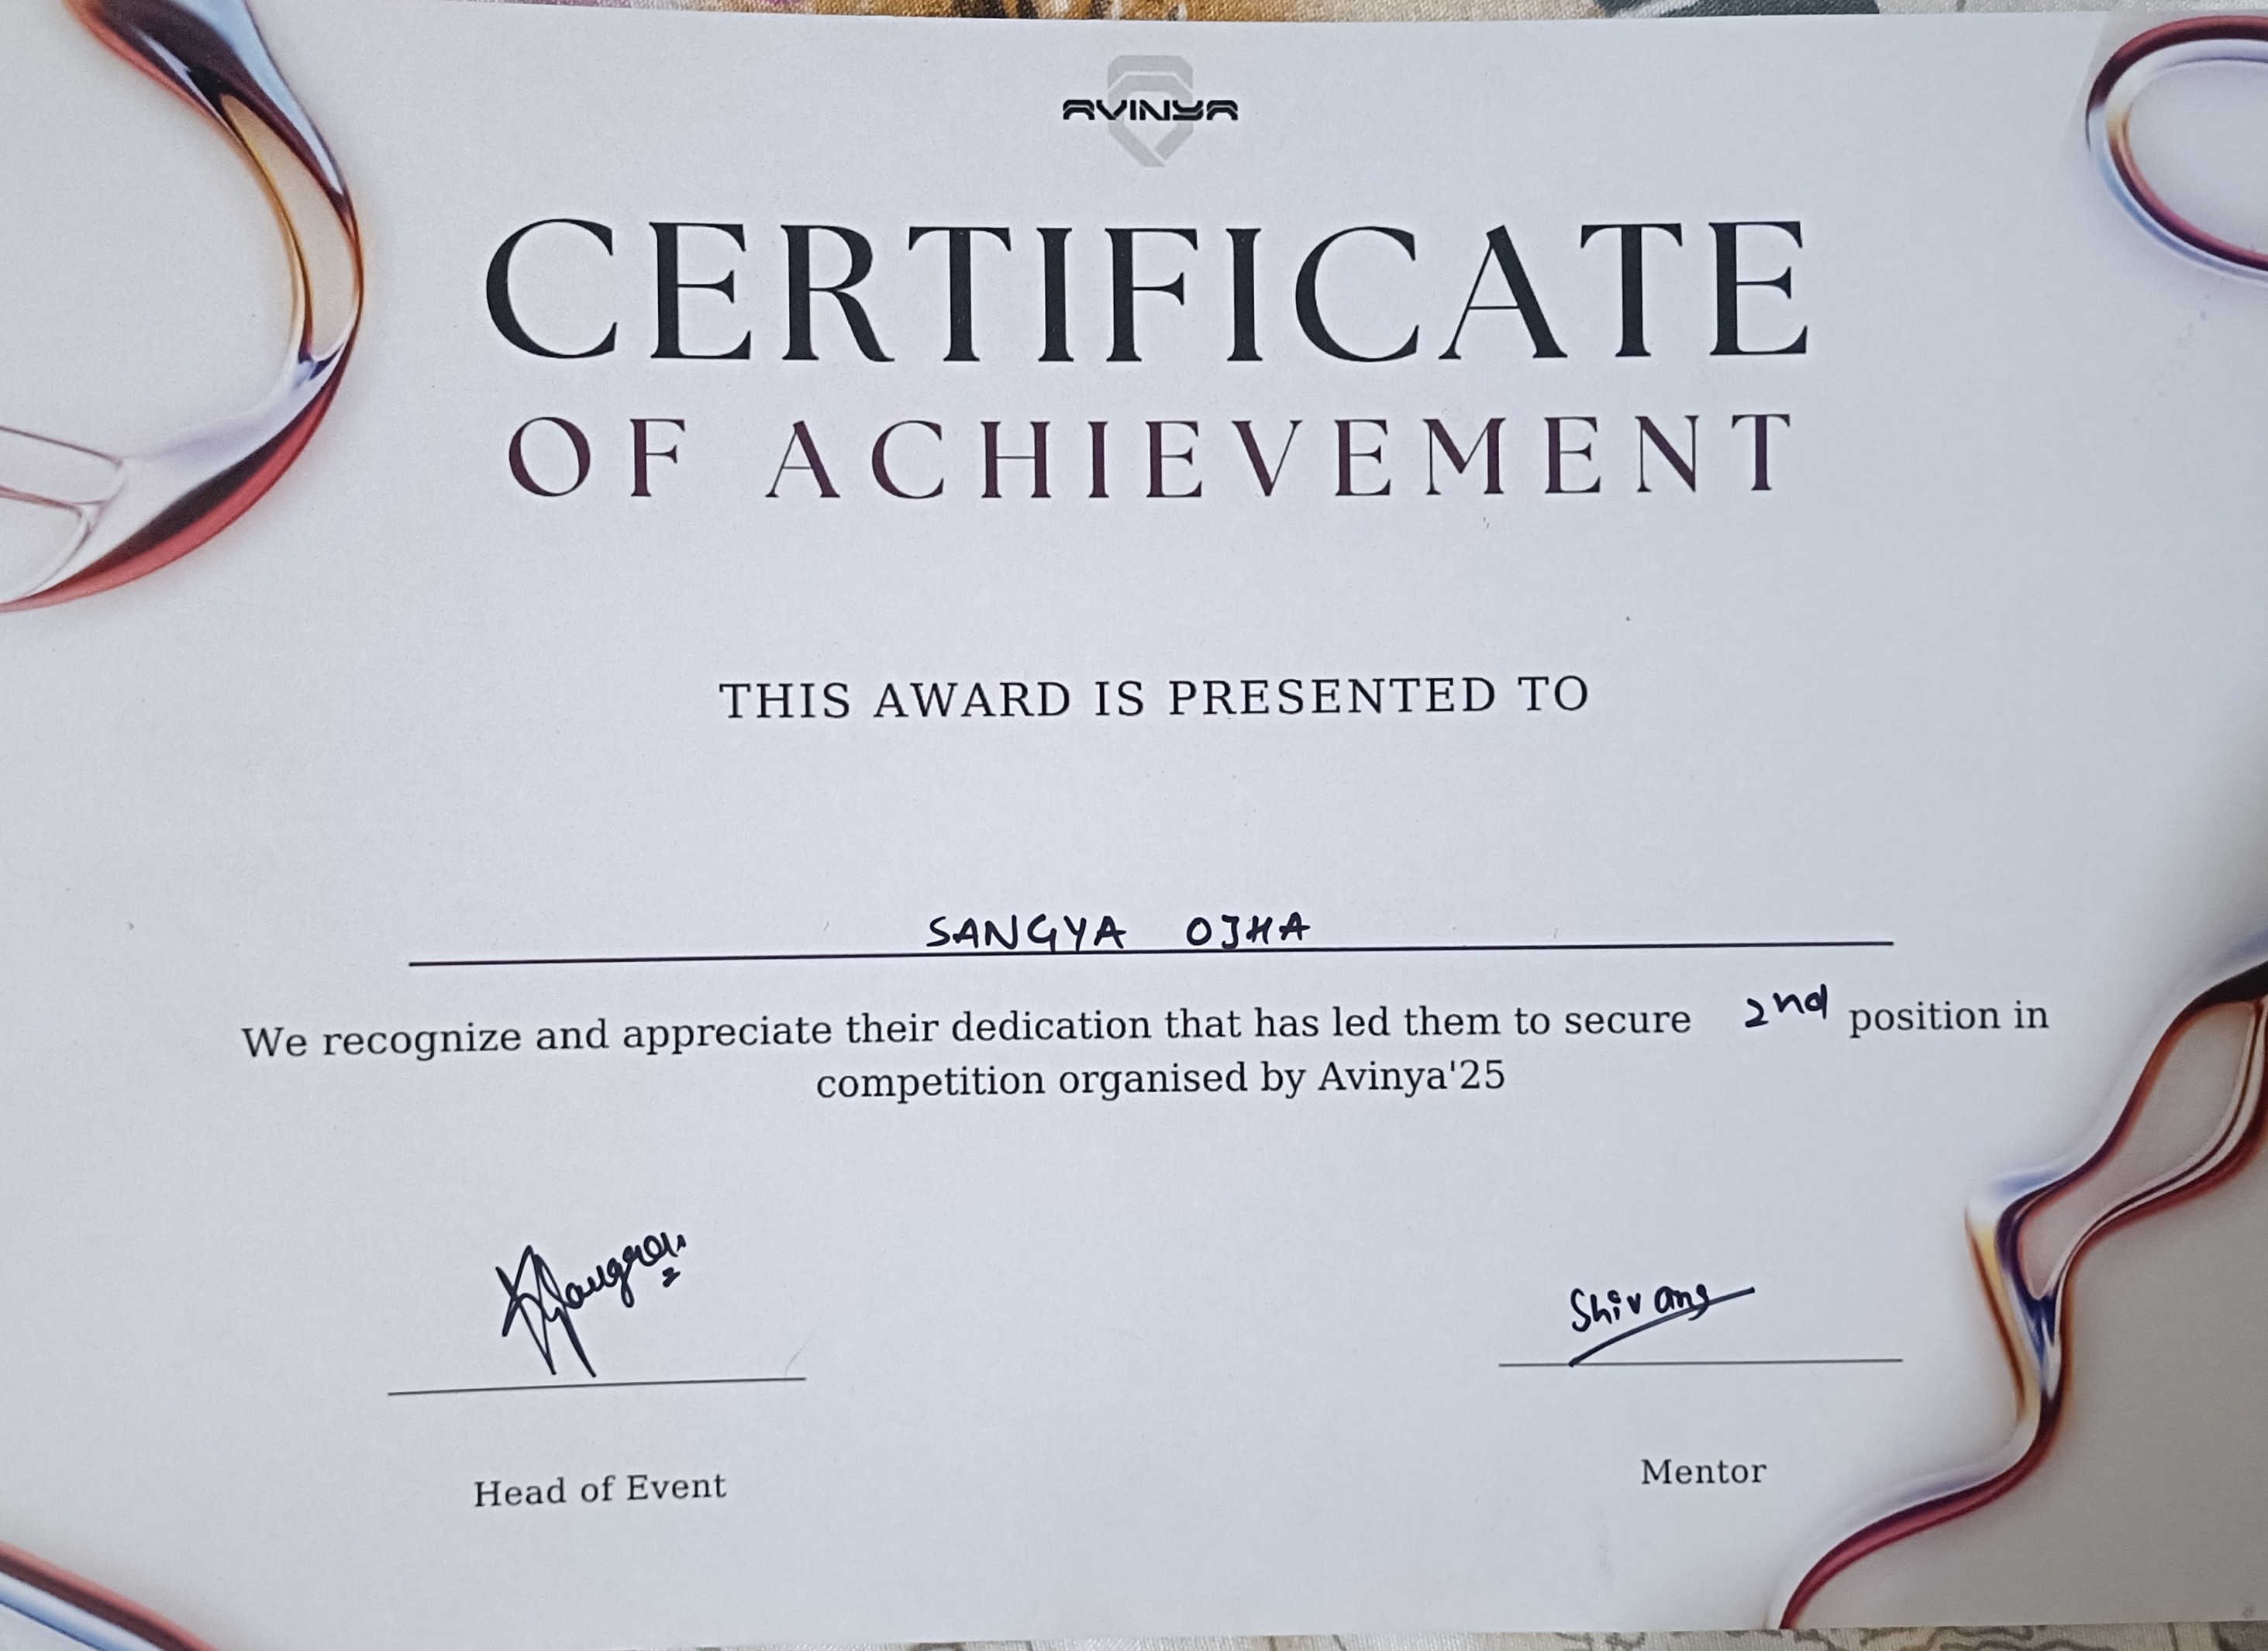 AVINYA
CERTIFICATE
OF ACHIEVEMENT
THIS AWARD IS PRESENTED TO
SANGYA OJHA
We recognize and appreciate their dedication that has led them to secure 2nd position in
competition organised by Avinya'25
Shivang
Head of Event
Mentor